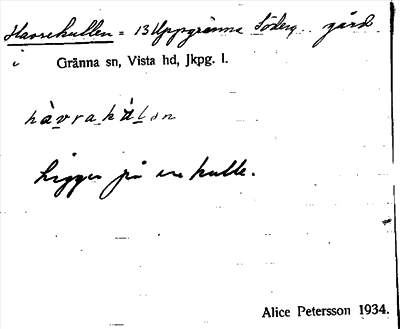 Havrekullen = 13 Uppgränna Söderg. gård
i Gränna sn, Vista hd, Jkpg. l.
hàvrakùlən
Ligger på en kulle.
Alice Petersson 1934.